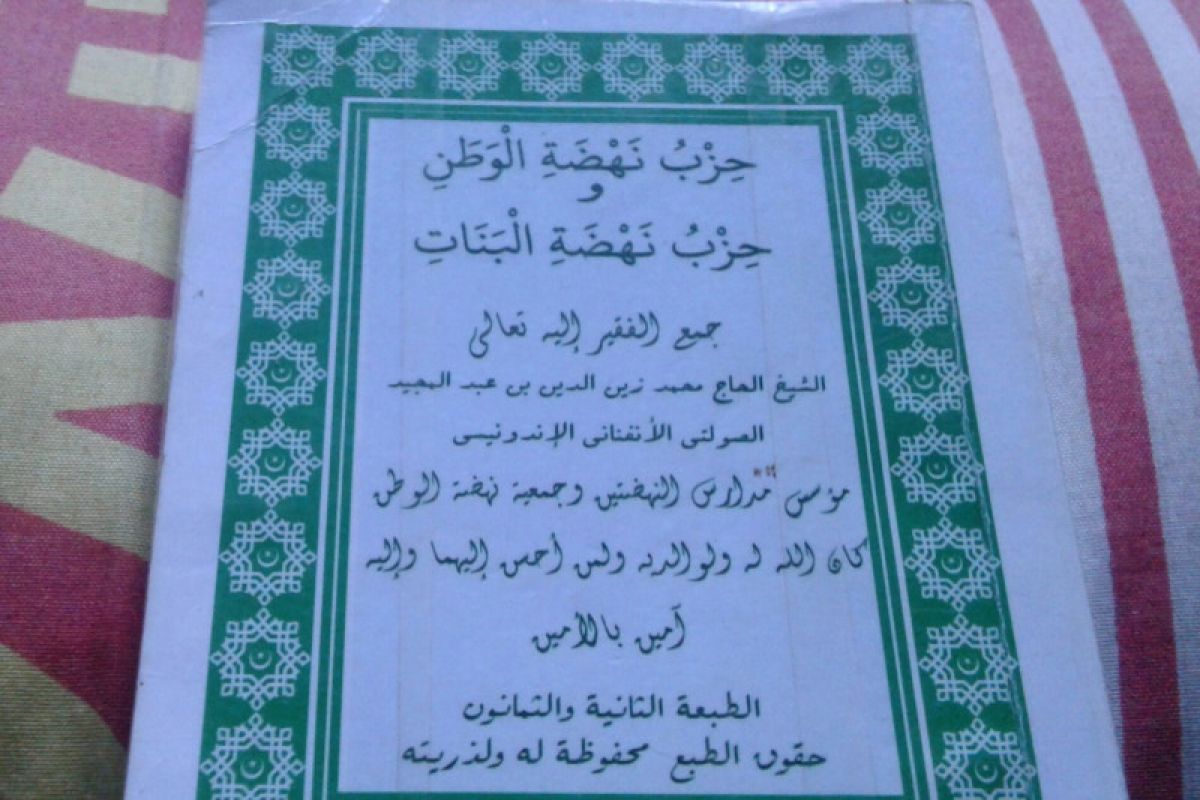 حِزْبُ نَهْضَةِ الْوَطَنِ
و
حِزْبُ نَهْضَةِ الْبَنَاتِ
جميع الفقير إليه تعالى
الشيخ الحاج محمد زين الدين بن عبد المجيد
الصولتى الأنفنانى الإندونيسى
مؤسس مدارس النهضتين وجمعية نهضة الوطن
كان الله له ولوالديه ولمن أحسن إليهما وإليه
آمين بالأمين
الطبعة الثانية والثمانون
حقوق الطبع محفوظة له ولذريته